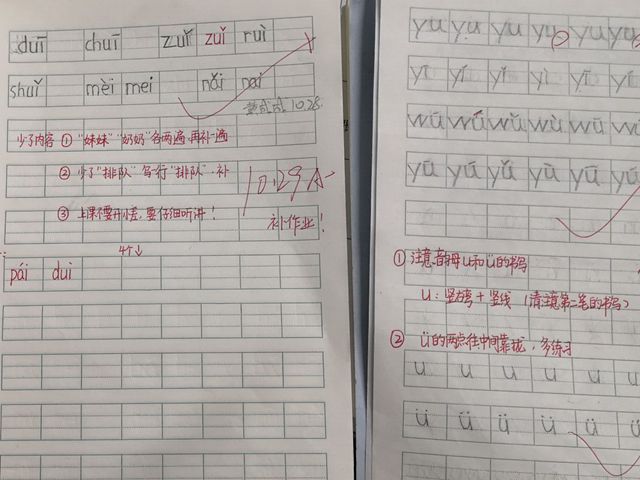 duī chuī zuǐ zuǐ ruì
shuǐ mèi mei nǎi nai
10.28
少了内容 ① "妹妹" "奶奶" 各两遍,再补一遍
② 少了"排队" 写一行"排队"·补
10.29 A-
③ 上课不要开小差,要仔细听讲!
补作业!
4个↓
pái duì
yu yu yu yu yu yu
yī yí yǐ yì yī yí
wū wú wǔ wù wū wú
yū yú yǔ yù yū yú
① 注意音母u和ü的书写
u:竖右弯+竖线 (请注意第二笔的书写)
② ü的两点往中间靠拢,多练习
u u u u u u
ü ü ü ü ü ü